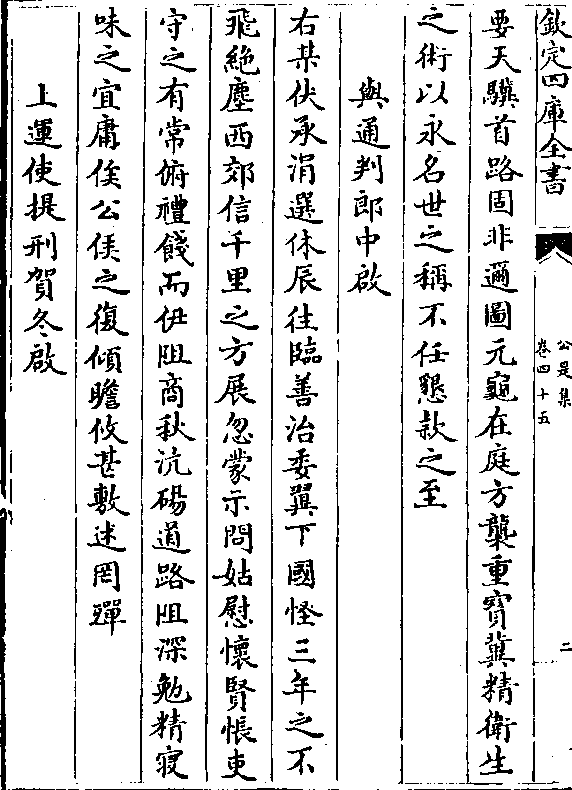 欽定四庫全書
公是集
卷四十五
二
要天驥首路固非邇圖元龜在庭方襲重寳冀精衛生
之術以永名世之稱不任懇款之至
與通判郎中啟
右某伏承涓選休辰往臨善治委翼下國怪三年之不
飛絶塵西郊信千里之方展忽蒙示問姑慰懷賢悵吏
守之有常俯禮餞而伊阻商秋沆碭道路阻深勉精寝
味之宜庸俟公侯之復傾瞻攸甚敷述罔殫
上運使提刑賀冬啟